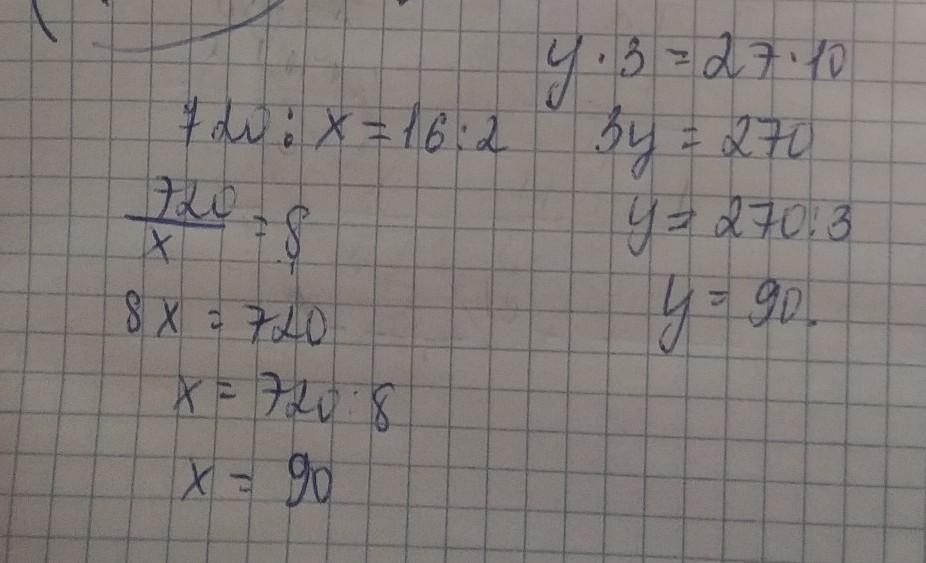 720 : x = 16 : 2
720
x
= 8
8x = 720
x = 720 : 8
x = 90
y · 3 = 27 · 10
3y = 270
y = 270 : 3
y = 90.